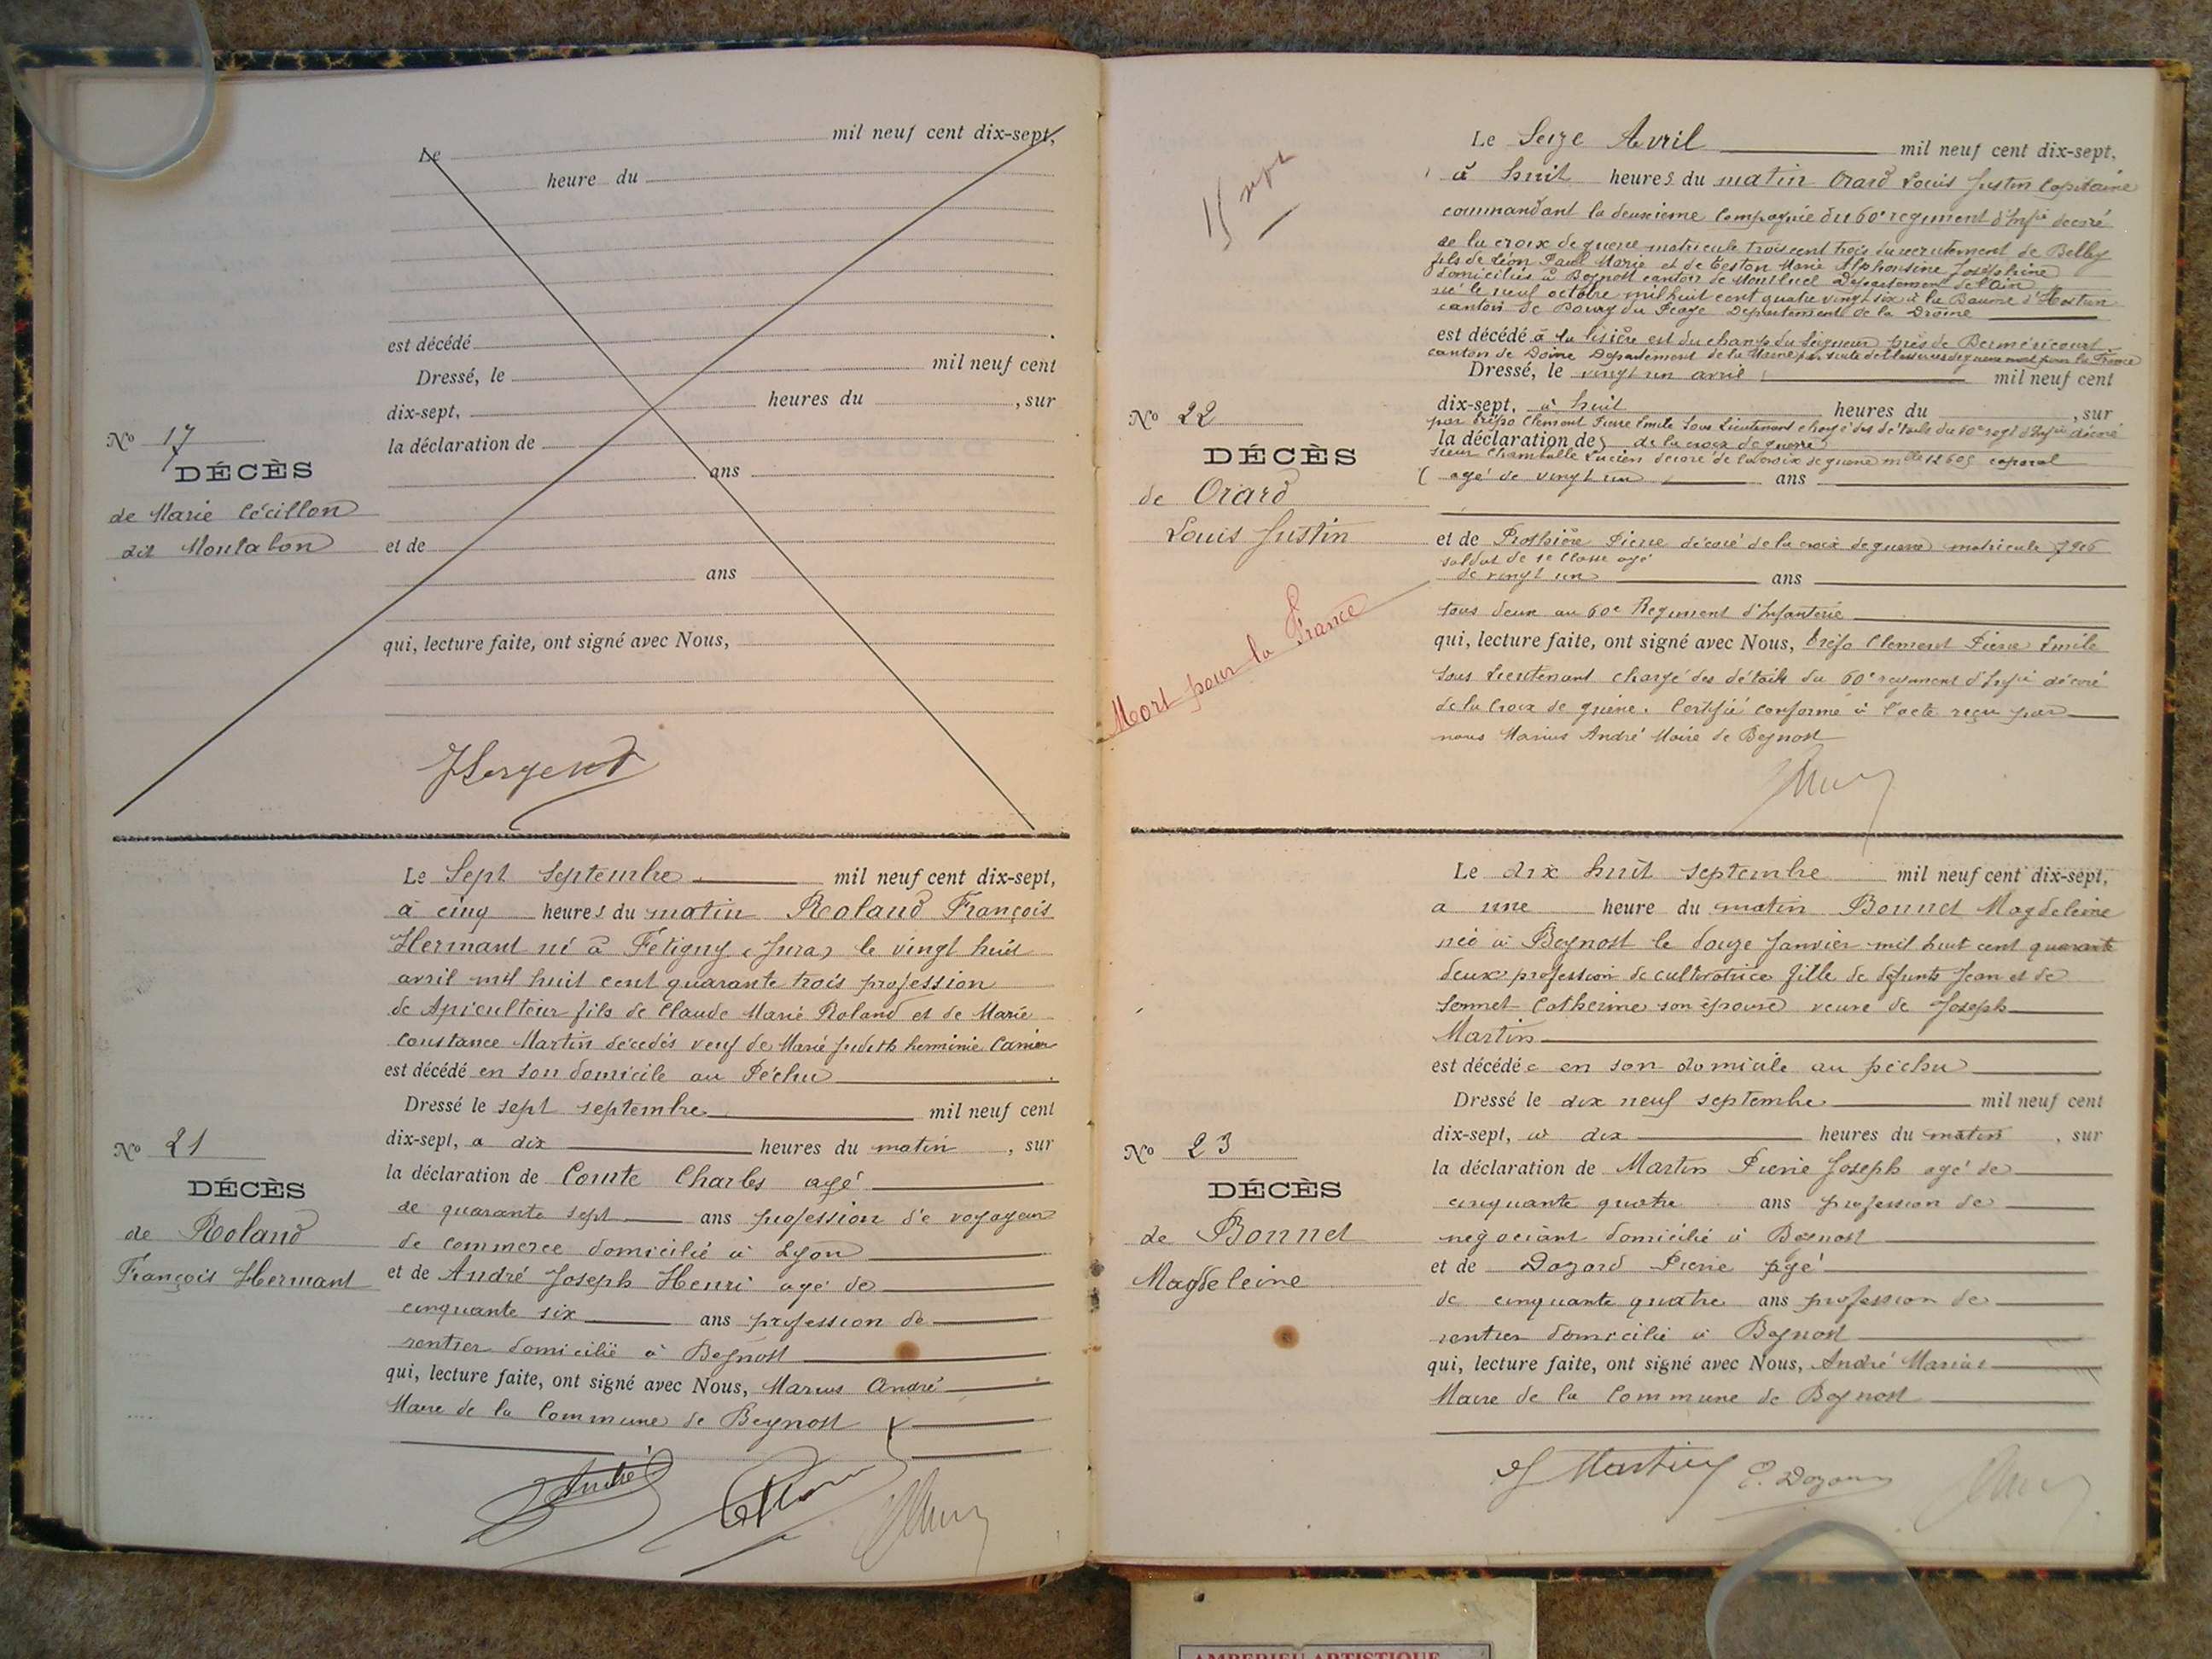 Le mil neuf cent dix-sept,
heure du
est décédé
Dressé, le mil neuf cent
dix-sept, heures du , sur
la déclaration de
ans
et de
ans
qui, lecture faite, ont signé avec Nous,
No 17
DÉCÈS
de Marie Cécillon
dit Montabon
Le Sept Septembre mil neuf cent dix-sept,
à cinq heures du matin Roland François
Hermant né à Fétigny (Jura) le vingt huit
avril mil huit cent quarante trois profession
de Apiculteur fils de Claude Marie Roland et de Marie
Constance Martin décédés veuf de Marie Judith herminie
est décédé en son domicile au Péchu
Dressé le sept septembre mil neuf cent
dix-sept, a dix heures du matin , sur
la déclaration de Comte Charles agé
de quarante sept ans profession de voyageur
de commerce domicilié à Lyon
et de André Joseph Henri agé de
cinquante six ans profession de
rentier domicilié à Beynost
qui, lecture faite, ont signé avec Nous, Marius André
Maire de la Commune de Beynost
No 21
DÉCÈS
de Roland
François Hermant
André
Le Seize Avril mil neuf cent dix-sept,
à huit heures du matin Orard Louis Justin Capitaine
commandant la deuxieme Compagnie du 60e regiment d'Infie decoré
de la croix de guerre matricule trois cent trois du recrutement de Belley
fils de Léon Paul Marie et de Teston Marie Alphonsine Joséphine
domiciliés à Beynost canton de Montluel Département de l'Ain
né le neuf octobre mil huit cent quatre vingt six à la Baume d'Hostun
canton de Bourg du Péage Departement de la Drôme
est décédé à la lisière est du champ du Seigneur près de Berméricourt
canton de Departement de la Marne par suite de blessures de guerre mort pour la France
Dressé, le vingt un avril mil neuf cent
dix-sept, à huit heures du , sur
par Clement Pierre Emile Sous Lieutenant chargé des détails du 60e regt d'Infie décoré
la déclaration de de la croix de guerre
sieur Lucien décoré de la croix de guerre mle 12609 caporal
agé de vingt un ans
et de Prothière Pierre décoré de la croix de guerre matricule
soldat de 1e Classe agé
de vingt un ans
tous deux au 60e Regiment d'Infanterie
qui, lecture faite, ont signé avec Nous, Clement Pierre Emile
Sous Lieutenant chargé des détails du 60e regiment d'Infie décoré
de la Croix de guerre. Certifié conforme à l'acte reçu par
nous Marius André Maire de Beynost
No 22
DÉCÈS
de Orard
Louis Justin
Mort pour la France
Le dix huit septembre mil neuf cent dix-sept,
a une heure du matin Bonnet Magdeleine
née à Beynost le douze Janvier mil huit cent quarante
deux profession de cultivatrice fille de défunts Jean et de
Catherine son épouse veuve de Joseph
Martin
est décédée en son domicile au péchu
Dressé le dix neuf septembre mil neuf cent
dix-sept, à dix heures du matin , sur
la déclaration de Martin Pierre Joseph agé de
cinquante quatre ans profession de
négociant domicilié à Beynost
et de Dozard Pierre agé
de cinquante quatre ans profession de
rentier domicilié à Beynost
qui, lecture faite, ont signé avec Nous, André Marius
Maire de la Commune de Beynost
No 23
DÉCÈS
de Bonnet
Magdeleine
Martin
AMBERIEU ARTISTIQUE